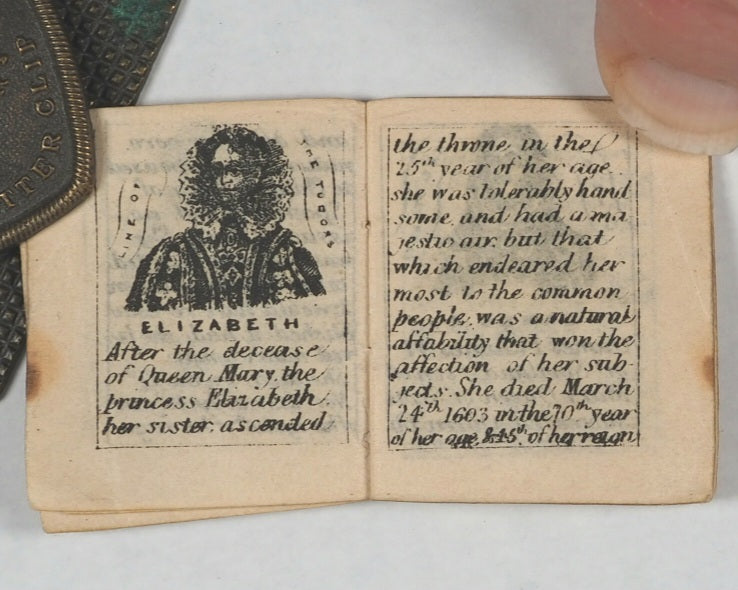 TTER CLIP
LINE OF
THE TUDORS
ELIZABETH
After the decease
of Queen Mary, the
princess Elizabeth
her sister, ascended
the throne in the
25th year of her age.
she was tolerably hand
some, and had a ma
jestic air, but that
which endeared her
most to the common
people, was a natural
affability that won the
affection of her sub-
jects. She died March
24th 1603 in the 70th year
of her age, & 45th of her reign